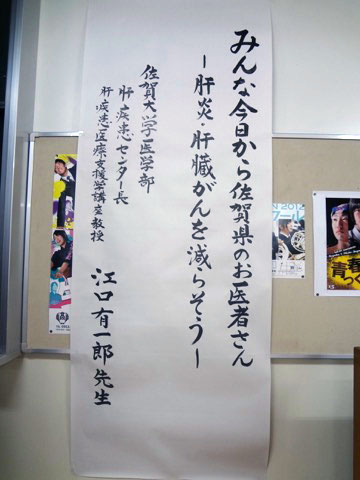 みんな今日から佐賀県のお医者さん
ー肝炎・肝臓がんを減らそうー
佐賀大学医学部
肝疾患センター長
肝疾患医療支援学講座教授
江口有一郎先生
青春